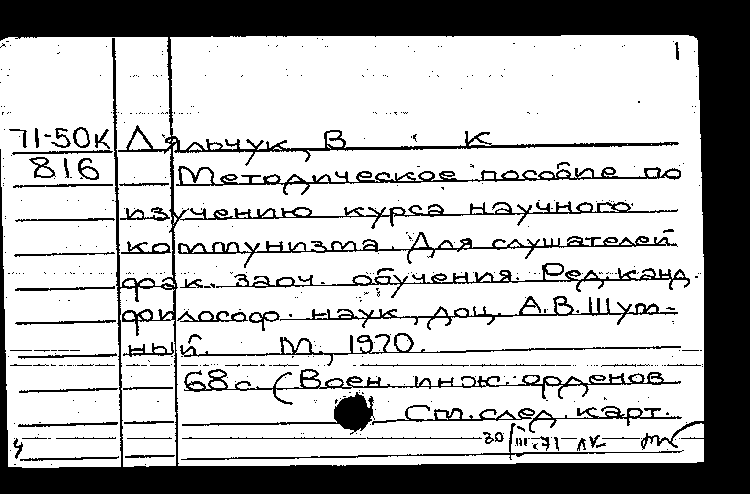 1
71-50К Ляльчук, В К
816 Методическое пособие по
изучению курса научного
коммунизма. Для слушателей
фак. заоч. обучения. Ред. канд.
философ. наук, доц. А.В. Шут-
ный. М., 1970.
68 с. (Воен. инж. орденов
См. след. карт.
20/III-71 ЛК